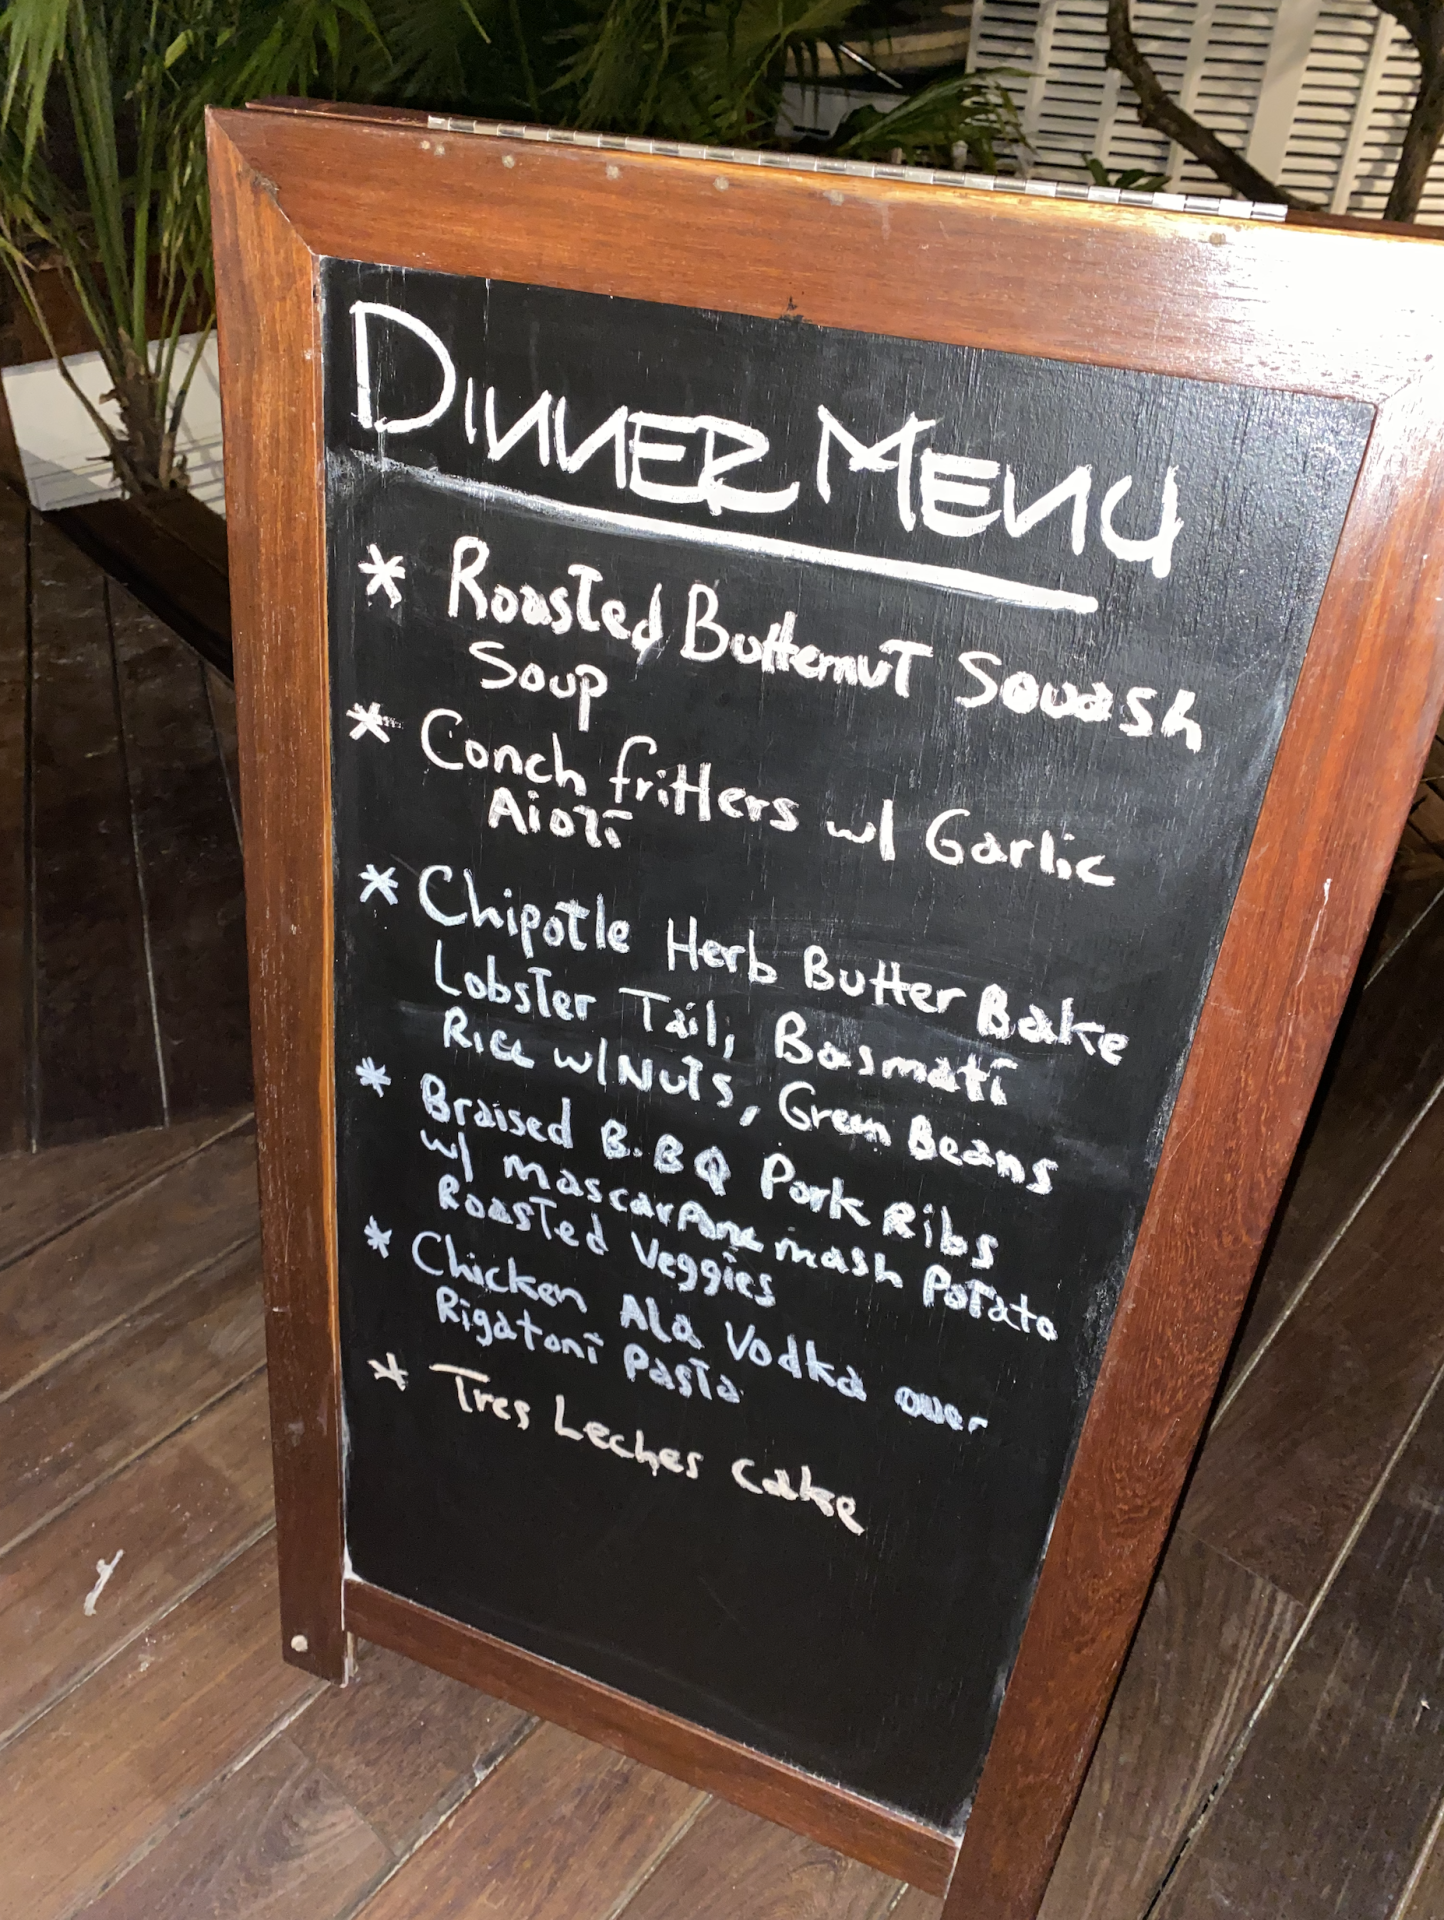 DINNER MENU
* Roasted Butternut Squash
Soup
* Conch fritters w/ Garlic
Aioli
* Chipotle Herb Butter Bake
Lobster Tail, Basmati
Rice w/Nuts, Green Beans
* Braised B.BQ Pork Ribs
w/ mascarpone mash Potato
Roasted Veggies
* Chicken Ala Vodka over
Rigatoni Pasta
* Tres Leches Cake